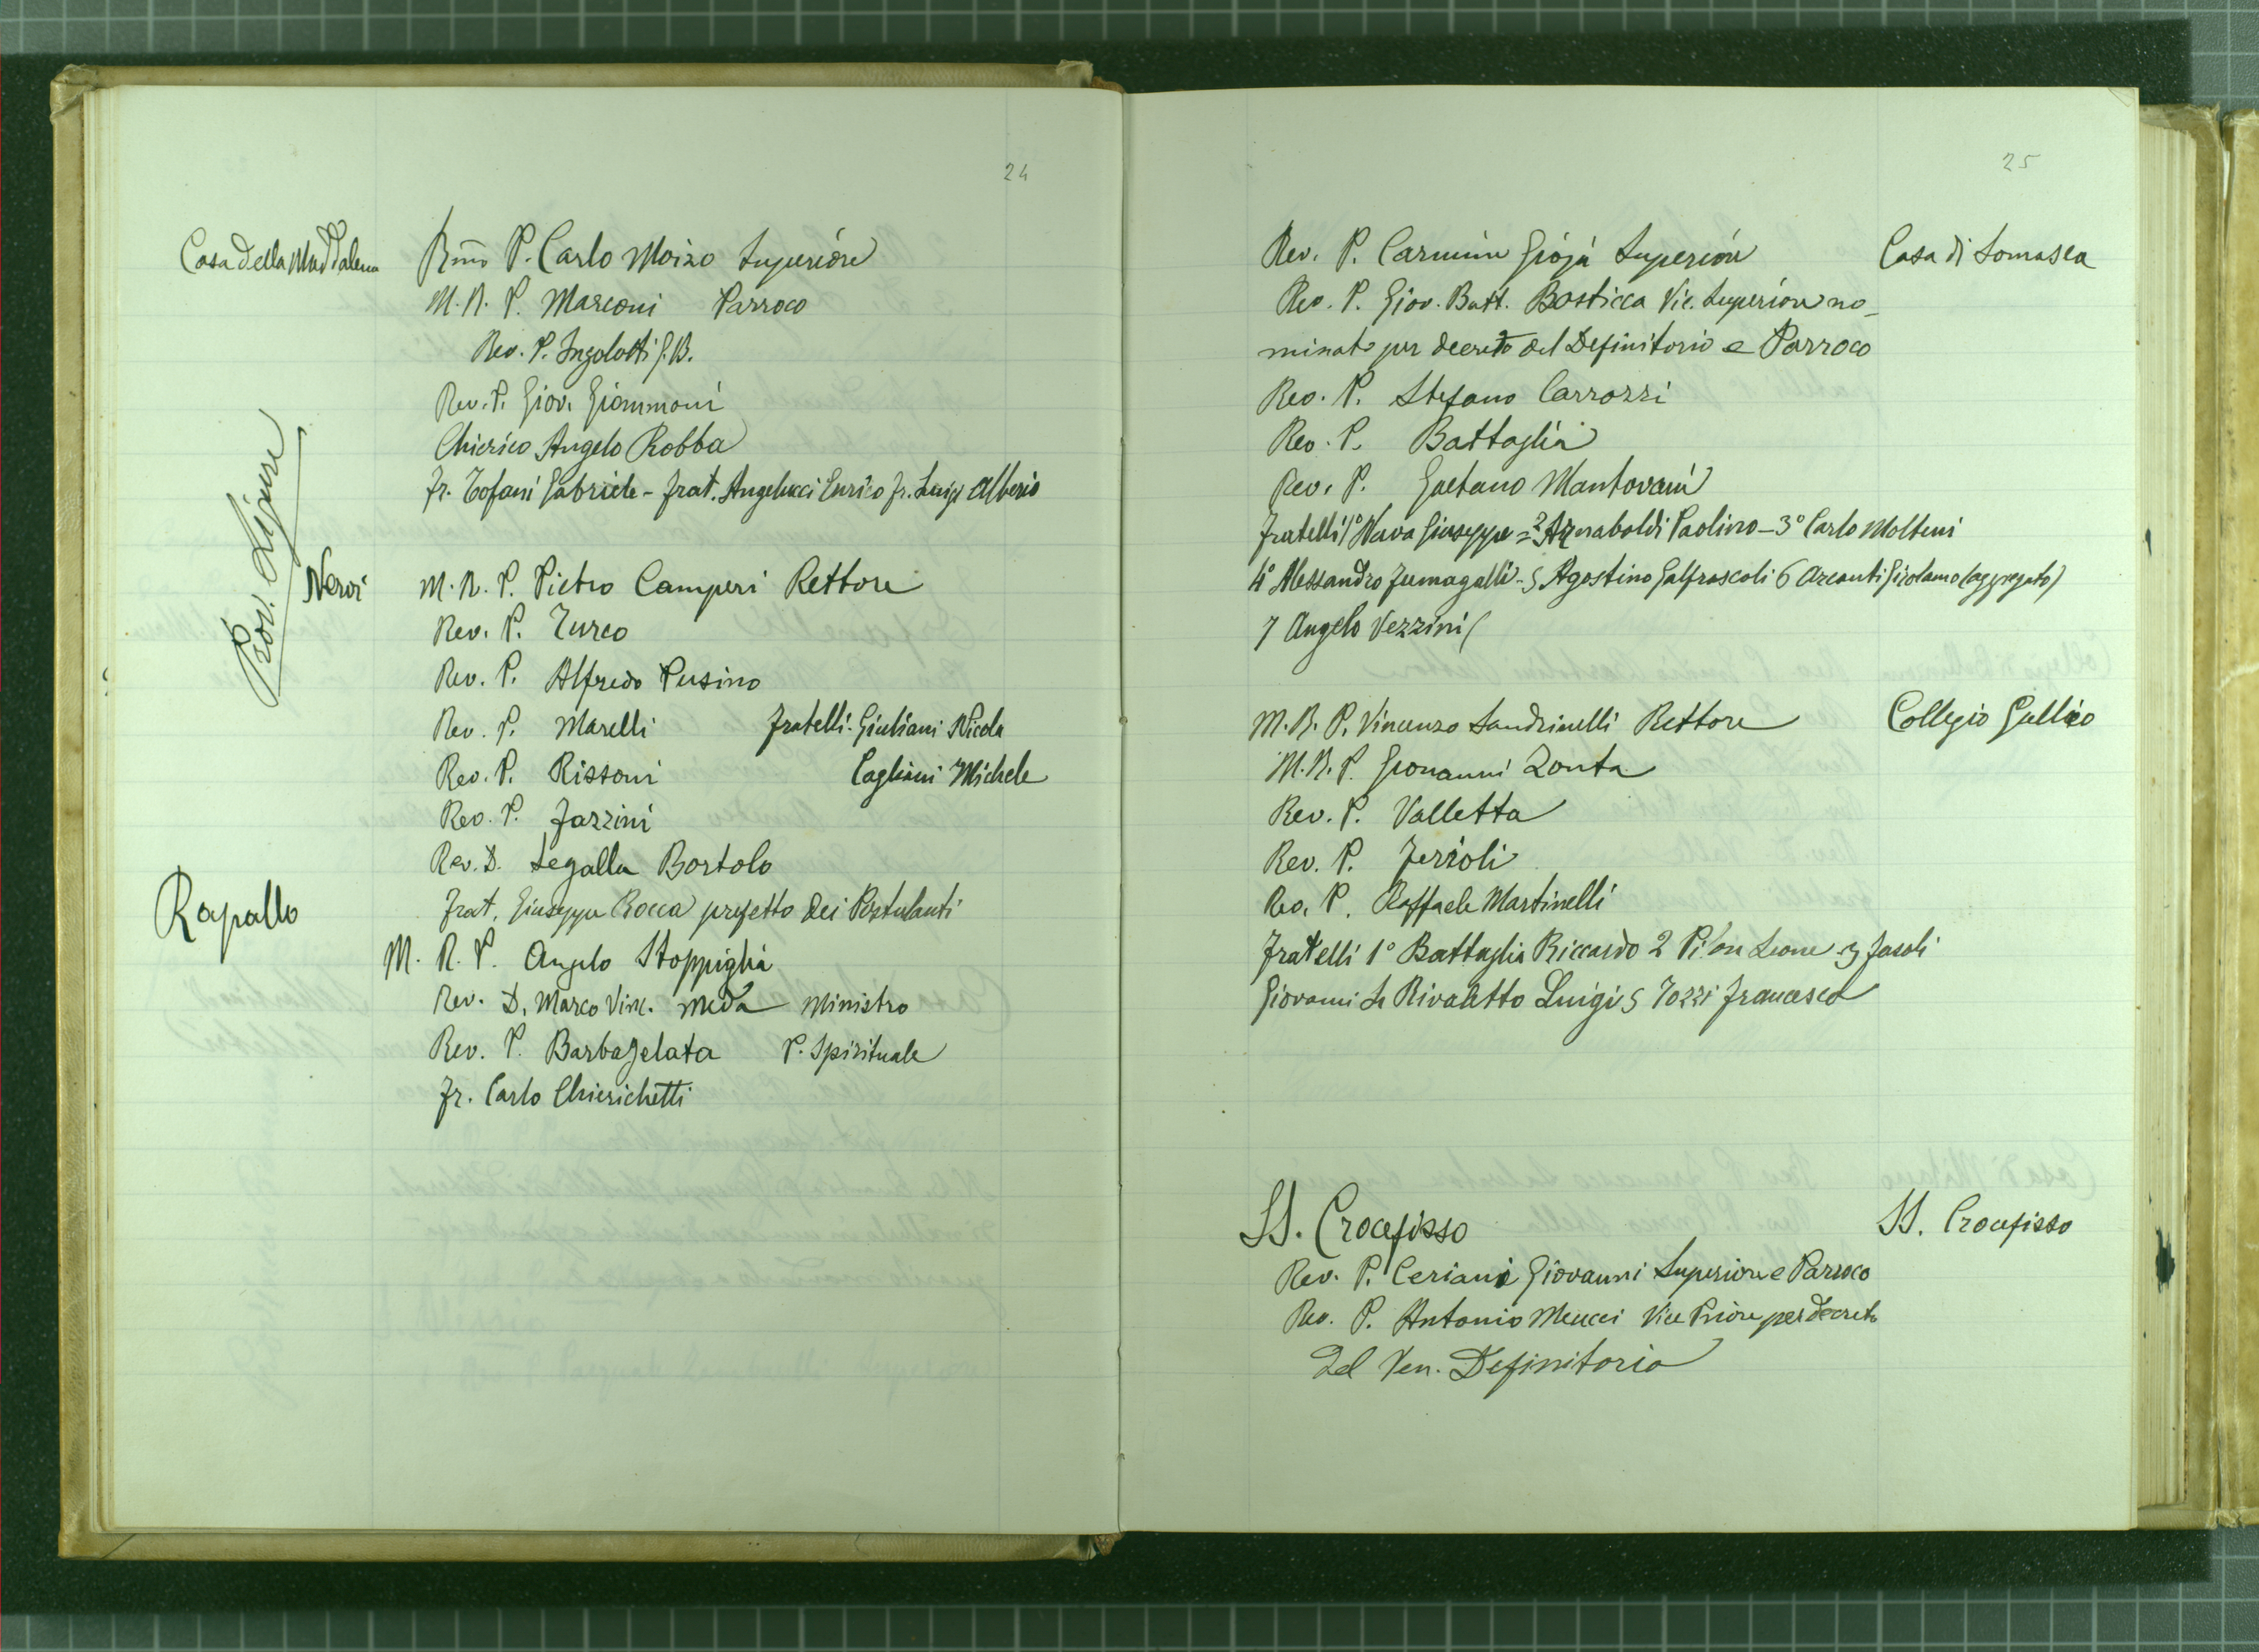 24
Casa della Maddalena
Rmo P. Carlo Moizo Superiore
M. R. P. Marconi Parroco
Rev. P. Ingolotti G. B.
Rev. P. Giov. Giammoni
Chierico Angelo Robba
Fr. Tofani Gabriele - Frat. Angelucci Enrico Fr. Luigi Alberio
Prov. Ligure
Nervi
M. R. P. Pietro Camperi Rettore
Rev. P. Turco
Rev. P. Alfredo Pusino
Rev. P. Marelli Fratelli. Giuliani Nicola
Rev. P. Rissoni Cagliani Michele
Rev. P. Fazzini
Rev. D. Segalla Bortolo
Frat. Giuseppe Rocca prefetto dei Postulanti
Rapallo
M. R. P. Angelo Stoppiglia
Rev. D. Marco Vinc. Meda Ministro
Rev. P. Barbagelata P. Spirituale
Fr. Carlo Chierichetti
25
Rev. P. Carmine Gioja Superiore Casa di Somasca
Rev. P. Giov. Batt. Bosticca Vic. Superiore no-
minato per decreto del Definitorio e Parroco
Rev. P. Stefano Carrozzi
Rev. P. Battaglia
Rev. P. Gaetano Mantovani
Fratelli 1° Nava Giuseppe = 2° Arnaboldi Paolino - 3° Carlo Molteni
4° Alessandro Fumagalli - 5 Agostino Galfrascoli 6 Arcanti Girolamo (aggregato)
7 Angelo Vezzini
M. R. P. Vincenzo Sandrinelli Rettore Collegio Gallio
M. R. P. Giovanni Zonta
Rev. P. Valletta
Rev. P. Ferioli
Rev. P. Raffaele Martinelli
Fratelli 1° Battaglia Riccardo 2 Leone 3 Fasoli
Giovanni 4 Rivaletto Luigi 5 Tozzi Francesco
SS. Crocefisso SS. Crocefisso
Rev. P. Ceriani Giovanni Superiore e Parroco
Rev. P. Antonio Meucci Vice Priore per decreto
del Ven. Definitorio